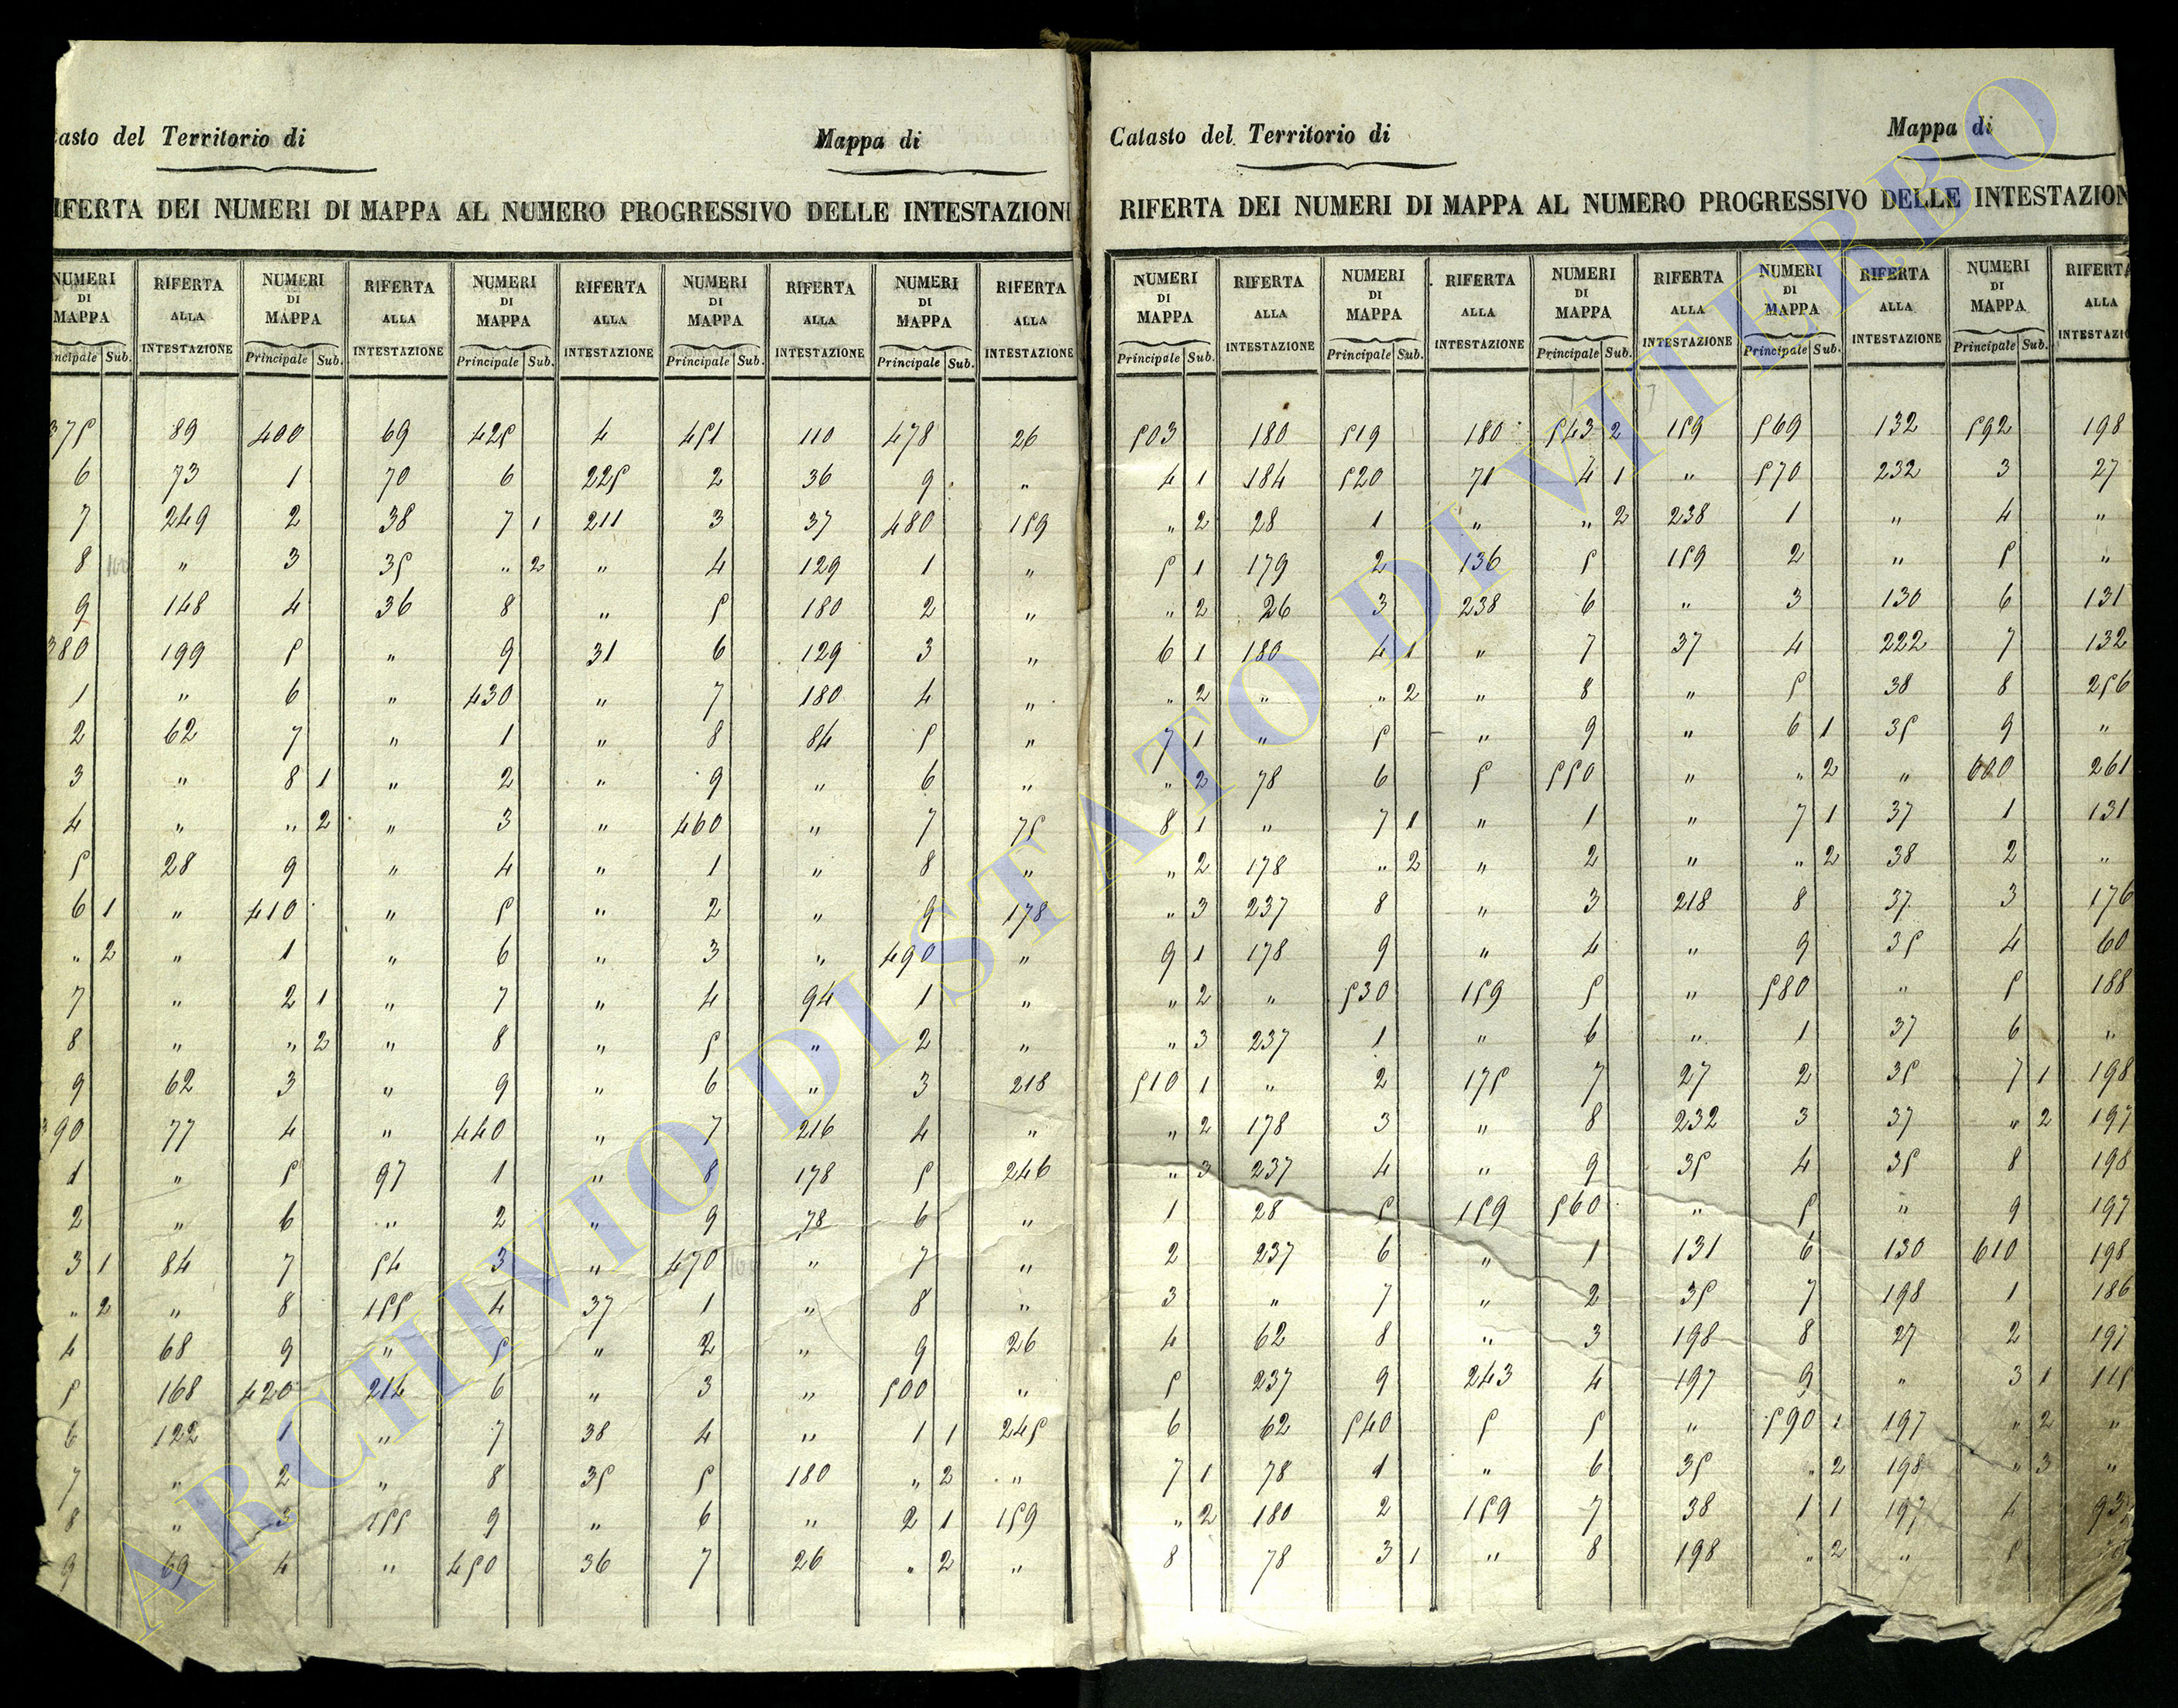 tasto del Territorio di Mappa di
IFERTA DEI NUMERI DI MAPPA AL NUMERO PROGRESSIVO DELLE INTESTAZIONI
NUMERI DI MAPPA RIFERTA ALLA INTESTAZIONE NUMERI DI MAPPA RIFERTA ALLA INTESTAZIONE NUMERI DI MAPPA RIFERTA ALLA INTESTAZIONE NUMERI DI MAPPA RIFERTA ALLA INTESTAZIONE NUMERI DI MAPPA RIFERTA ALLA INTESTAZIONE
ncipale Sub. Principale Sub. Principale Sub. Principale Sub. Principale Sub.
375 89 400 69 425 4 451 110 478 26
6 73 1 70 6 225 2 36 9 "
7 249 2 38 7 1 211 3 37 480 159
8 " 3 35 " 2 " 4 129 1 "
9 148 4 36 8 " 5 180 2 "
380 199 5 " 9 31 6 129 3 "
1 " 6 " 430 " 7 180 4 "
2 62 7 " 1 " 8 84 5 "
3 " 8 1 " 2 " 9 " 6 "
4 " " 2 " 3 " 460 " 7 75
5 28 9 " 4 " 1 " 8 "
6 1 " 410 " 5 " 2 " 9 178
" 2 " 1 " 6 " 3 " 490 "
7 " 2 1 " 7 " 4 94 1 "
8 " " 2 " 8 " 5 " 2 "
9 62 3 " 9 " 6 " 3 218
390 77 4 " 440 " 7 216 4 "
1 " 5 97 1 " 8 178 5 246
2 " 6 " 2 " 9 78 6 "
3 1 84 7 54 3 " 470 " 7 "
" 2 " 8 155 4 37 1 " 8 "
4 68 9 " 5 " 2 " 9 26
5 168 420 214 6 " 3 " 500 "
6 122 1 " 7 38 4 " 1 1 245
7 " 2 " 8 35 5 180 " 2 "
8 " 3 155 9 " 6 " 2 1 159
9 69 4 " 450 36 7 26 " 2 "
Catasto del Territorio di Mappa di
RIFERTA DEI NUMERI DI MAPPA AL NUMERO PROGRESSIVO DELLE INTESTAZION
NUMERI DI MAPPA RIFERTA ALLA INTESTAZIONE NUMERI DI MAPPA RIFERTA ALLA INTESTAZIONE NUMERI DI MAPPA RIFERTA ALLA INTESTAZIONE NUMERI DI MAPPA RIFERTA ALLA INTESTAZIONE NUMERI DI MAPPA RIFERTA ALLA INTESTAZIO
Principale Sub. Principale Sub. Principale Sub. Principale Sub. Principale Sub.
503 180 519 180 543 2 159 569 132 592 198
4 1 184 520 71 4 1 " 570 232 3 27
" 2 28 1 " " 2 238 1 " 4 "
5 1 179 2 136 5 159 2 " 5 "
" 2 26 3 238 6 " 3 130 6 131
6 1 180 4 1 " 7 37 4 222 7 132
" 2 " " 2 " 8 " 5 38 8 256
7 1 " 5 " 9 " 6 1 35 9 "
" 2 78 6 5 550 " " 2 " 600 261
8 1 " 7 1 " 1 " 7 1 37 1 131
" 2 178 " 2 " 2 " " 2 38 2 "
" 3 237 8 " 3 218 8 37 3 176
9 1 178 9 " 4 " 9 35 4 60
" 2 " 530 159 5 " 580 " 5 188
" 3 237 1 " 6 " 1 37 6 "
510 1 " 2 175 7 27 2 35 7 1 198
" 2 178 3 " 8 232 3 37 " 2 197
" 3 237 4 " 9 35 4 35 8 198
1 28 5 159 560 " 5 " 9 197
2 237 6 " 1 131 6 130 610 198
3 " 7 " 2 35 7 198 1 186
4 62 8 " 3 198 8 27 2 197
5 237 9 243 4 197 9 " 3 1 115
6 62 540 5 5 " 590 1 197 " 2 "
7 1 78 1 " 6 35 " 2 198 " 3 "
" 2 180 2 159 7 38 1 1 197 4 93
8 78 3 1 " 8 198 " 2 " 5
ARCHIVIO DI STATO DI VITERBO